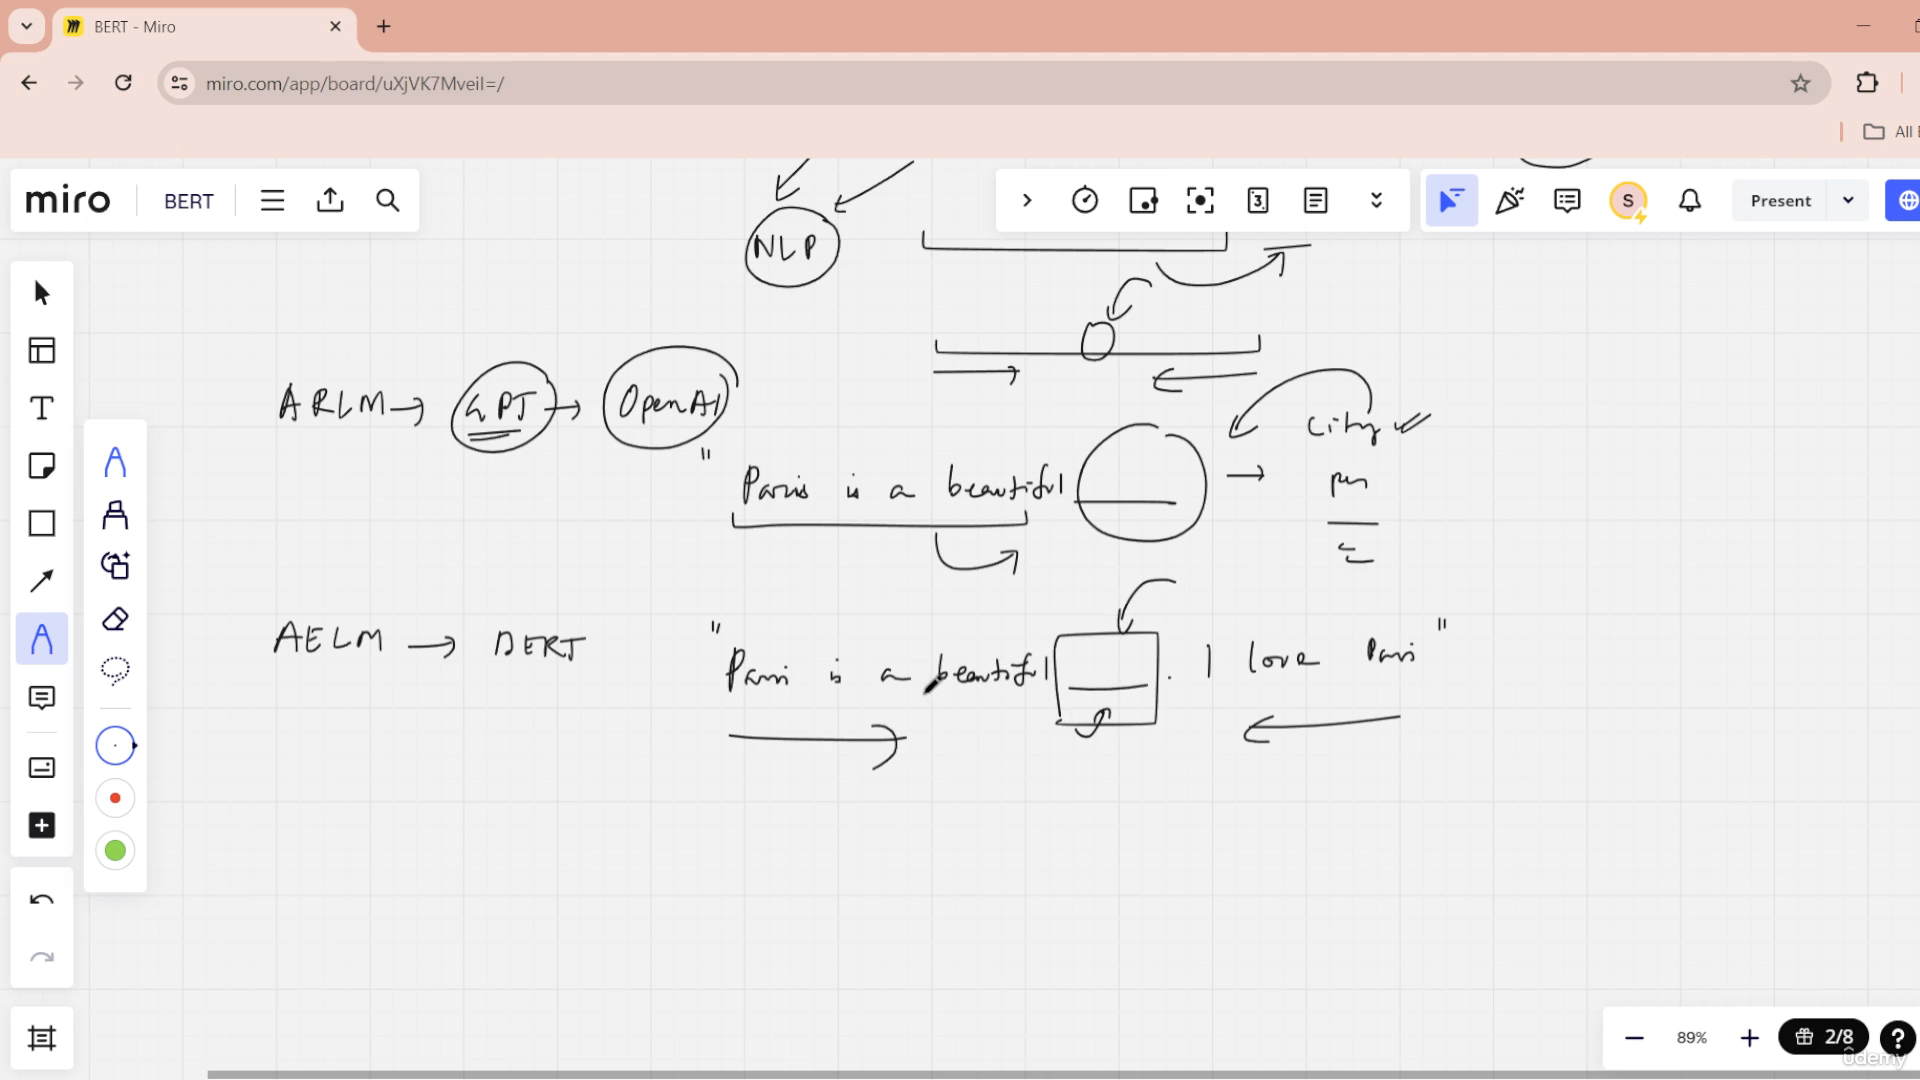 BERT - Miro
miro.com/app/board/uXjVK7MveiI=/
All
miro BERT
3
S
Present
NLP
ARLM → GPT → OpenAI
City
" Paris is a beautiful →
pen
AELM → BERT
" Paris is a beautiful . I love Paris "
89%
2/8
?
udemy